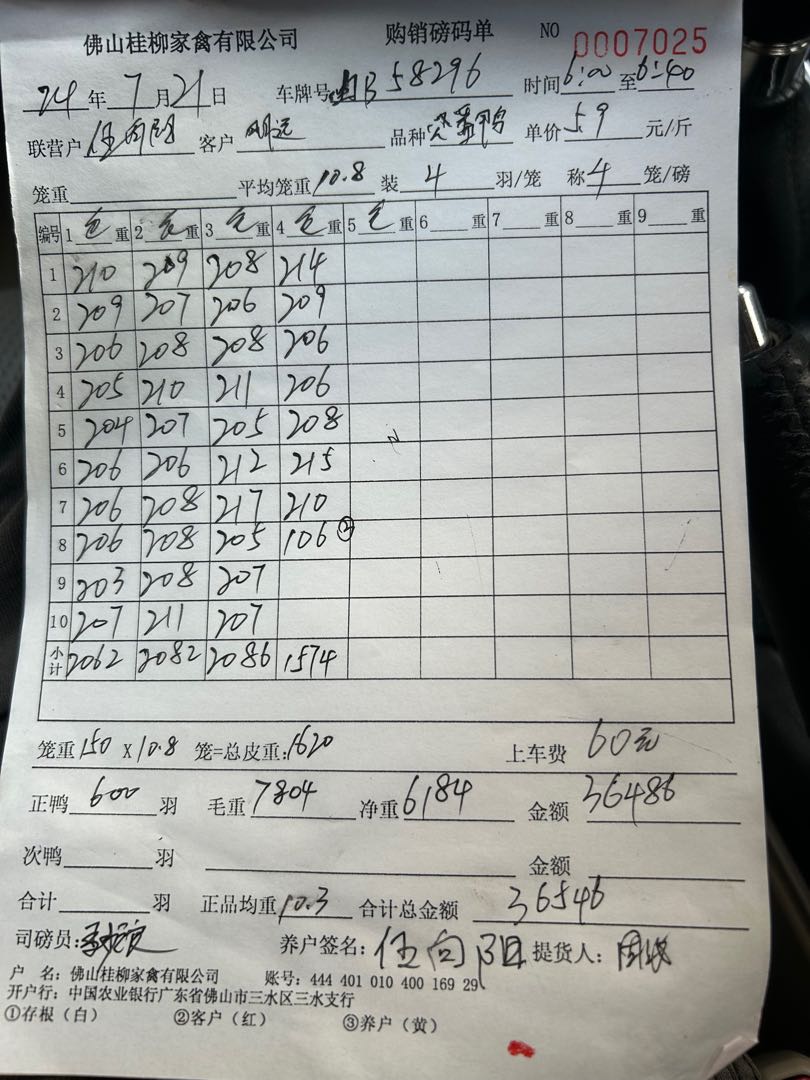 佛山桂柳家禽有限公司 购销磅码单 NO 0007025
24年7月21日 车牌号 B58296 时间6:00至6:40
联营户 伍向阳 客户 明远 品种 鸭 单价5.9元/斤
笼重 平均笼重10.8 装4羽/笼 称4笼/磅
编号 1毛重 2毛重 3毛重 4毛重 5毛重 6重 7重 8重 9重
1 210 209 208 214
2 209 207 206 209
3 206 208 208 206
4 205 210 211 206
5 204 207 205 208
6 206 206 212 215
7 206 208 217 210
8 206 208 205 106 ②
9 203 208 207
10 207 211 207
小计 2062 2082 2086 1574
笼重150 X 10.8 笼=总皮重:1620 上车费 60元
正鸭600羽 毛重7804 净重6184 金额36486
次鸭 羽 金额
合计 羽 正品均重10.3 合计总金额 36546
司磅员: 养户签名:伍向阳 提货人:
户 名: 佛山桂柳家禽有限公司 账号: 444 401 010 400 169 29
开户行: 中国农业银行广东省佛山市三水区三水支行
①存根(白) ②客户(红) ③养户(黄)